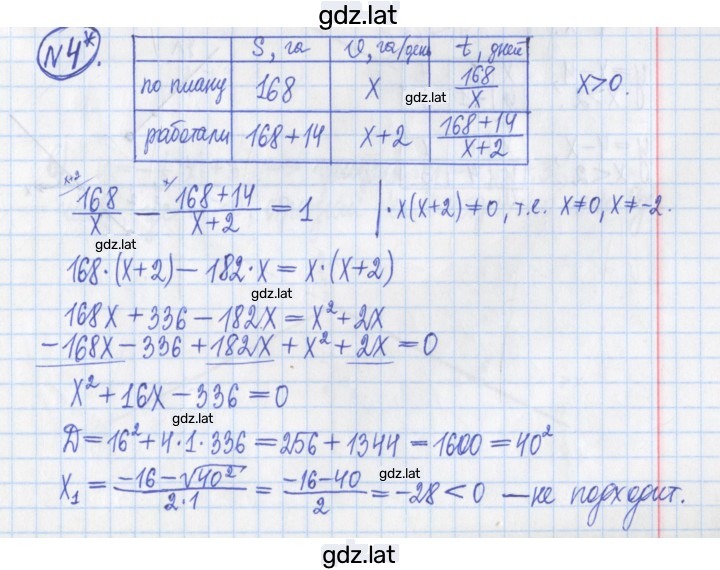 gdz.lat
№4*.
S, га | υ, га/день | t, дней
по плану | 168 | x | 168/x
gdz.lat
x>0.
работали | 168+14 | x+2 | (168+14)/(x+2)
x+2 x
168/x − (168+14)/(x+2) = 1 | · x(x+2)≠0, т.е. x≠0, x≠−2.
gdz.lat
168·(x+2)−182·x=x·(x+2)
gdz.lat
168x+336−182x=x²+2x
−168x−336+182x+x²+2x=0
gdz.lat
x²+16x−336=0
gdz.lat
D=16²+4·1·336=256+1344=1600=40²
gdz.lat
x₁ = (−16−√40²)/(2·1) = (−16−40)/2 = −28<0 — не подходит.
gdz.lat
gdz.lat